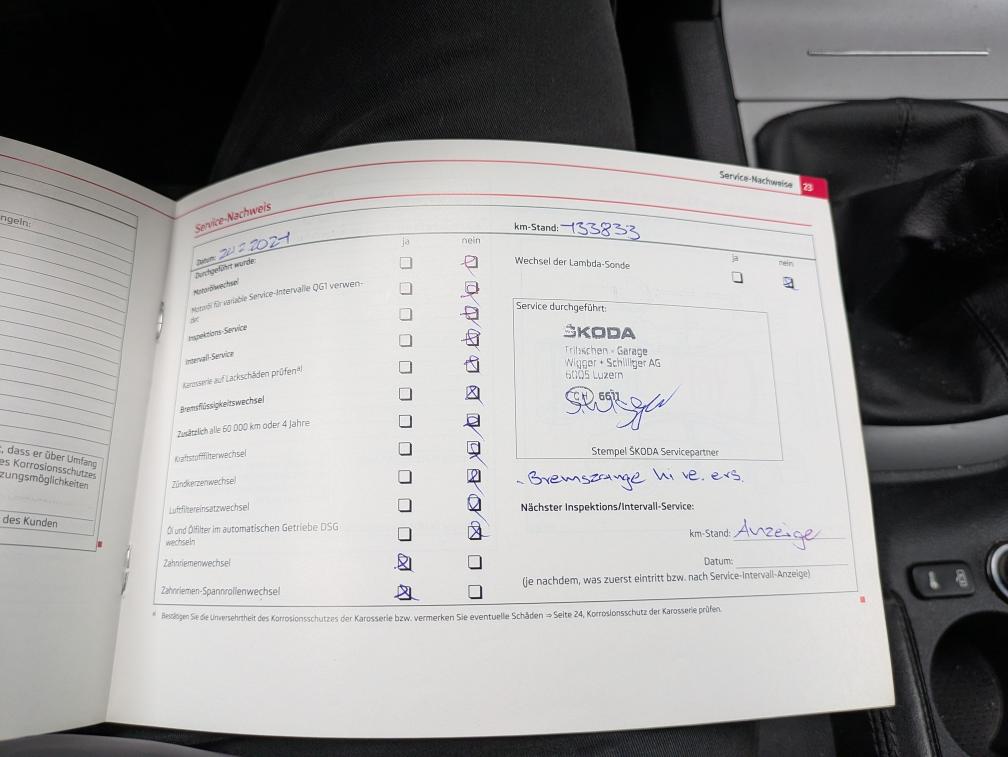 Service-Nachweise 23
ngeln:
, dass er über Umfang
es Korrosionsschutzes
zungsmöglichkeiten
des Kunden
Service-Nachweis
Datum: 2021
km-Stand: 133833
Durchgeführt wurde:
ja nein
Motorölwechsel
Motoröl für variable Service-Intervalle QG1 verwen-
det
Inspektions-Service
Intervall-Service
Karosserie auf Lackschäden prüfen a)
Bremsflüssigkeitswechsel
Zusätzlich alle 60 000 km oder 4 Jahre
Kraftstofffilterwechsel
Zündkerzenwechsel
Luftfiltereinsatzwechsel
Öl und Ölfilter im automatischen Getriebe DSG
wechseln
Zahnriemenwechsel
Zahnriemen-Spannrollenwechsel
ja nein
Wechsel der Lambda-Sonde
Service durchgeführt:
ŠKODA
Tribschen - Garage
Wigger + Schilliger AG
6005 Luzern
CH 6611
Stempel ŠKODA Servicepartner
- Bremszange hi ve. ers.
Nächster Inspektions/Intervall-Service:
km-Stand: Anzeige
Datum:
(je nachdem, was zuerst eintritt bzw. nach Service-Intervall-Anzeige)
a) Bestätigen Sie die Unversehrtheit des Korrosionsschutzes der Karosserie bzw. vermerken Sie eventuelle Schäden ⇒ Seite 24, Korrosionsschutz der Karosserie prüfen.